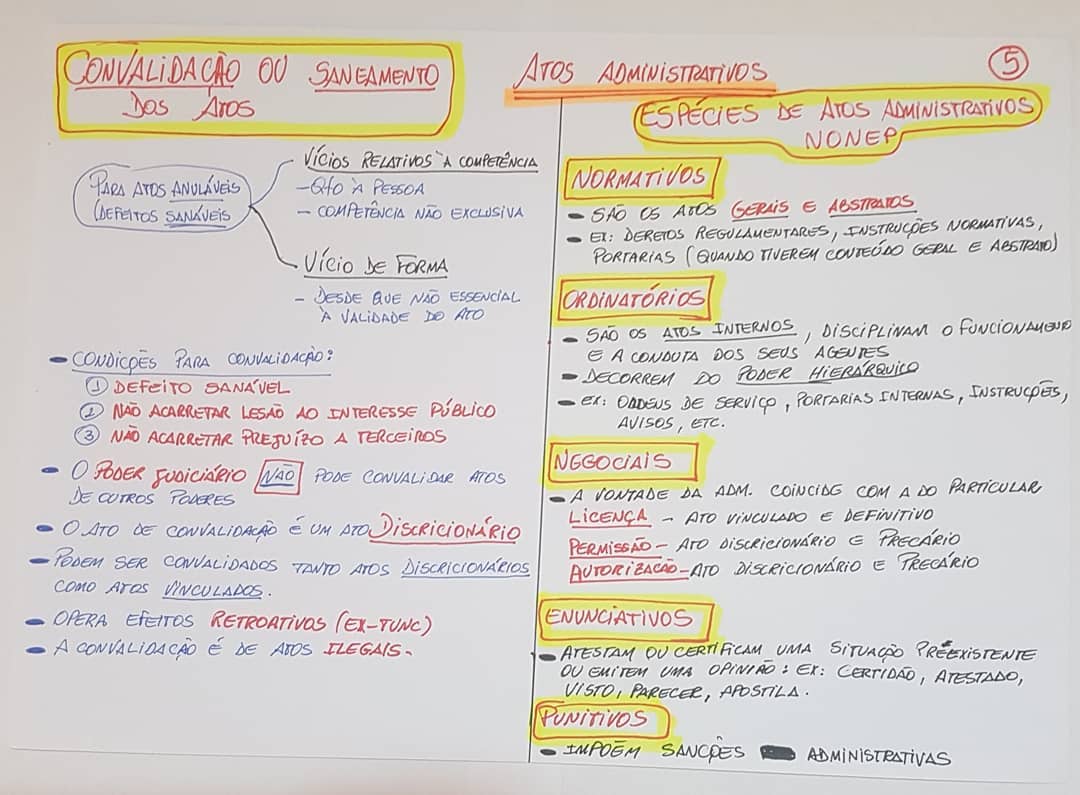 ATOS ADMINISTRATIVOS
5
CONVALIDAÇÃO OU SANEAMENTO
DOS ATOS
PARA ATOS ANULÁVEIS
(DEFEITOS SANÁVEIS
VÍCIOS RELATIVOS À COMPETÊNCIA
- QTO À PESSOA
- COMPETÊNCIA NÃO EXCLUSIVA
VÍCIO DE FORMA
- DESDE QUE NÃO ESSENCIAL
À VALIDADE DO ATO
- CONDIÇÕES PARA CONVALIDAÇÃO:
1 DEFEITO SANÁVEL
2 NÃO ACARRETAR LESÃO AO INTERESSE PÚBLICO
3 NÃO ACARRETAR PREJUÍZO A TERCEIROS
- O PODER JUDICIÁRIO NÃO PODE CONVALIDAR ATOS
DE OUTROS PODERES
- O ATO DE CONVALIDAÇÃO É UM ATO DISCRICIONÁRIO
- PODEM SER CONVALIDADOS TANTO ATOS DISCRICIONÁRIOS
COMO ATOS VINCULADOS.
- OPERA EFEITOS RETROATIVOS (EX-TUNC)
- A CONVALIDAÇÃO É DE ATOS ILEGAIS.
ESPÉCIES DE ATOS ADMINISTRATIVOS
NONEP
NORMATIVOS
- SÃO OS ATOS GERAIS E ABSTRATOS
- EX: DERETOS REGULAMENTARES, INSTRUÇÕES NORMATIVAS,
PORTARIAS (QUANDO TIVEREM CONTEÚDO GERAL E ABSTRATO)
ORDINATÓRIOS
- SÃO OS ATOS INTERNOS, DISCIPLINAM O FUNCIONAMENTO
E A CONDUTA DOS SEUS AGENTES
- DECORREM DO PODER HIERÁRQUICO
- EX: ORDENS DE SERVIÇO, PORTARIAS INTERNAS, INSTRUÇÕES,
AVISOS, ETC.
NEGOCIAIS
- A VONTADE DA ADM. COINCIDE COM A DO PARTICULAR
LICENÇA - ATO VINCULADO E DEFINITIVO
PERMISSÃO - ATO DISCRICIONÁRIO E PRECÁRIO
AUTORIZAÇÃO - ATO DISCRICIONÁRIO E PRECÁRIO
ENUNCIATIVOS
- ATESTAM OU CERTIFICAM UMA SITUAÇÃO PRÉEXISTENTE
OU EMITEM UMA OPINIÃO: EX: CERTIDÃO, ATESTADO,
VISTO, PARECER, APOSTILA.
PUNITIVOS
- IMPÕEM SANÇÕES ADMINISTRATIVAS